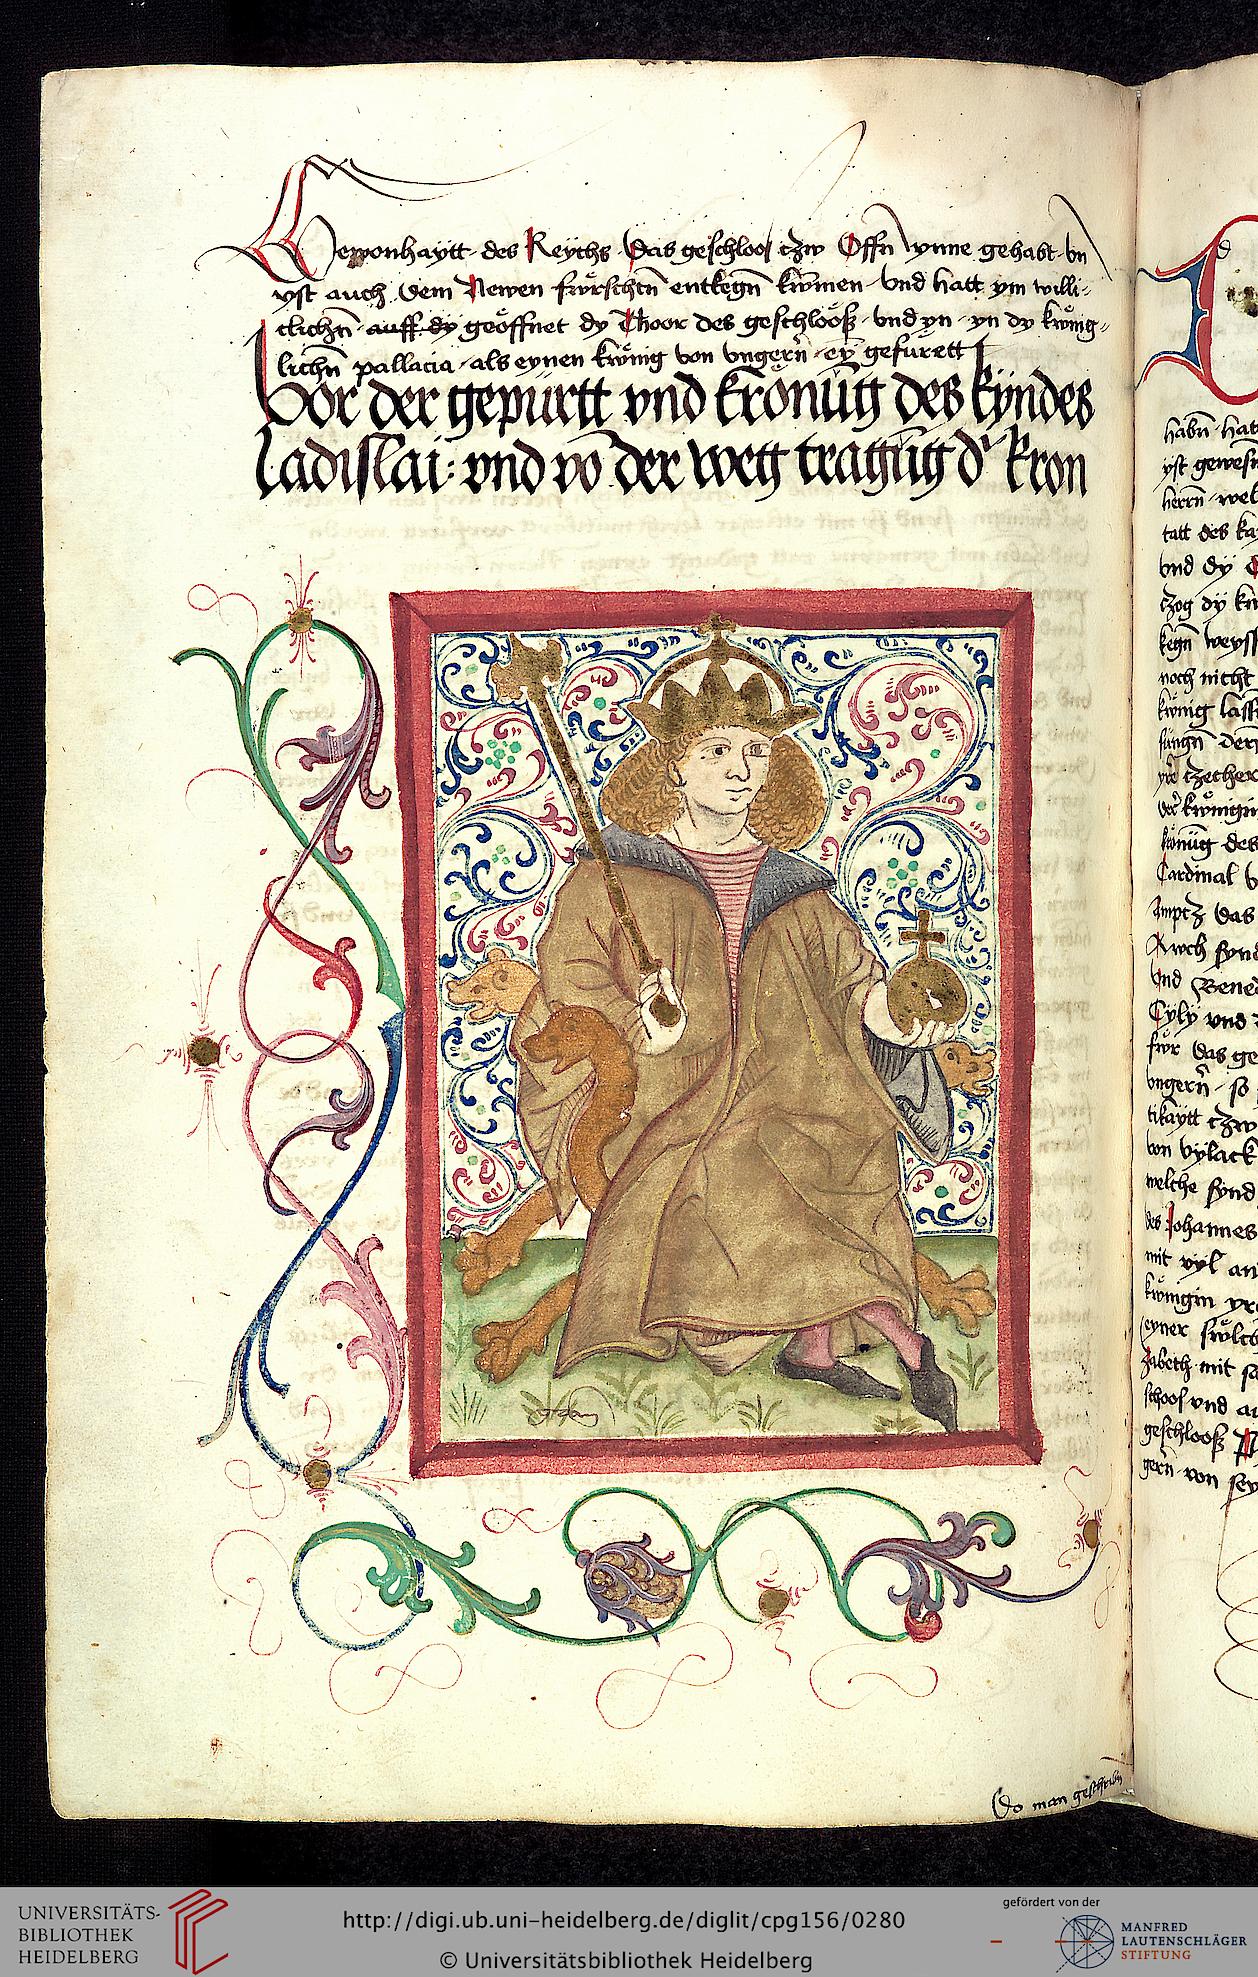 Gewonhaytt · des Reychs · das geschloos czw Offn ynne gehabt · vn
yst auch dem Newen fwrschtn entkegn kwmen · vnd hatt ym willi-
clichn · auff dy geöffnet dy Thoor des geschlooß · vnd yn · yn dy kwnig-
lichn pallacia · als eynen kwnig von vngern · ey gefürett
Vor der gepurtt vnd kronug des kyndes
ladislai : vnd vo der weg tragug d' kron
Do man geschribn
habn · hat
yst gewesn
herrn · wel
tatt des ka
vnd dy
czog dy kn
kegn weyss
noch nicht
kwnig lass
der
yre czecher
der kwnigin
kronug · des
Cardinal v
das
Auch synd
vnd Bened
Cyly vnd
fwr das ge
vngern · so
tikaytt czw
von vylack
welche synd
des Johannes
mit vyl an
kwnigin yr
eyner
zabeth · mit
schoos vnd
geschlooß
gern · von sey
UNIVERSITÄTS-
BIBLIOTHEK
HEIDELBERG
http://digi.ub.uni-heidelberg.de/diglit/cpg156/0280
© Universitätsbibliothek Heidelberg
gefördert von der
MANFRED
LAUTENSCHLÄGER
STIFTUNG